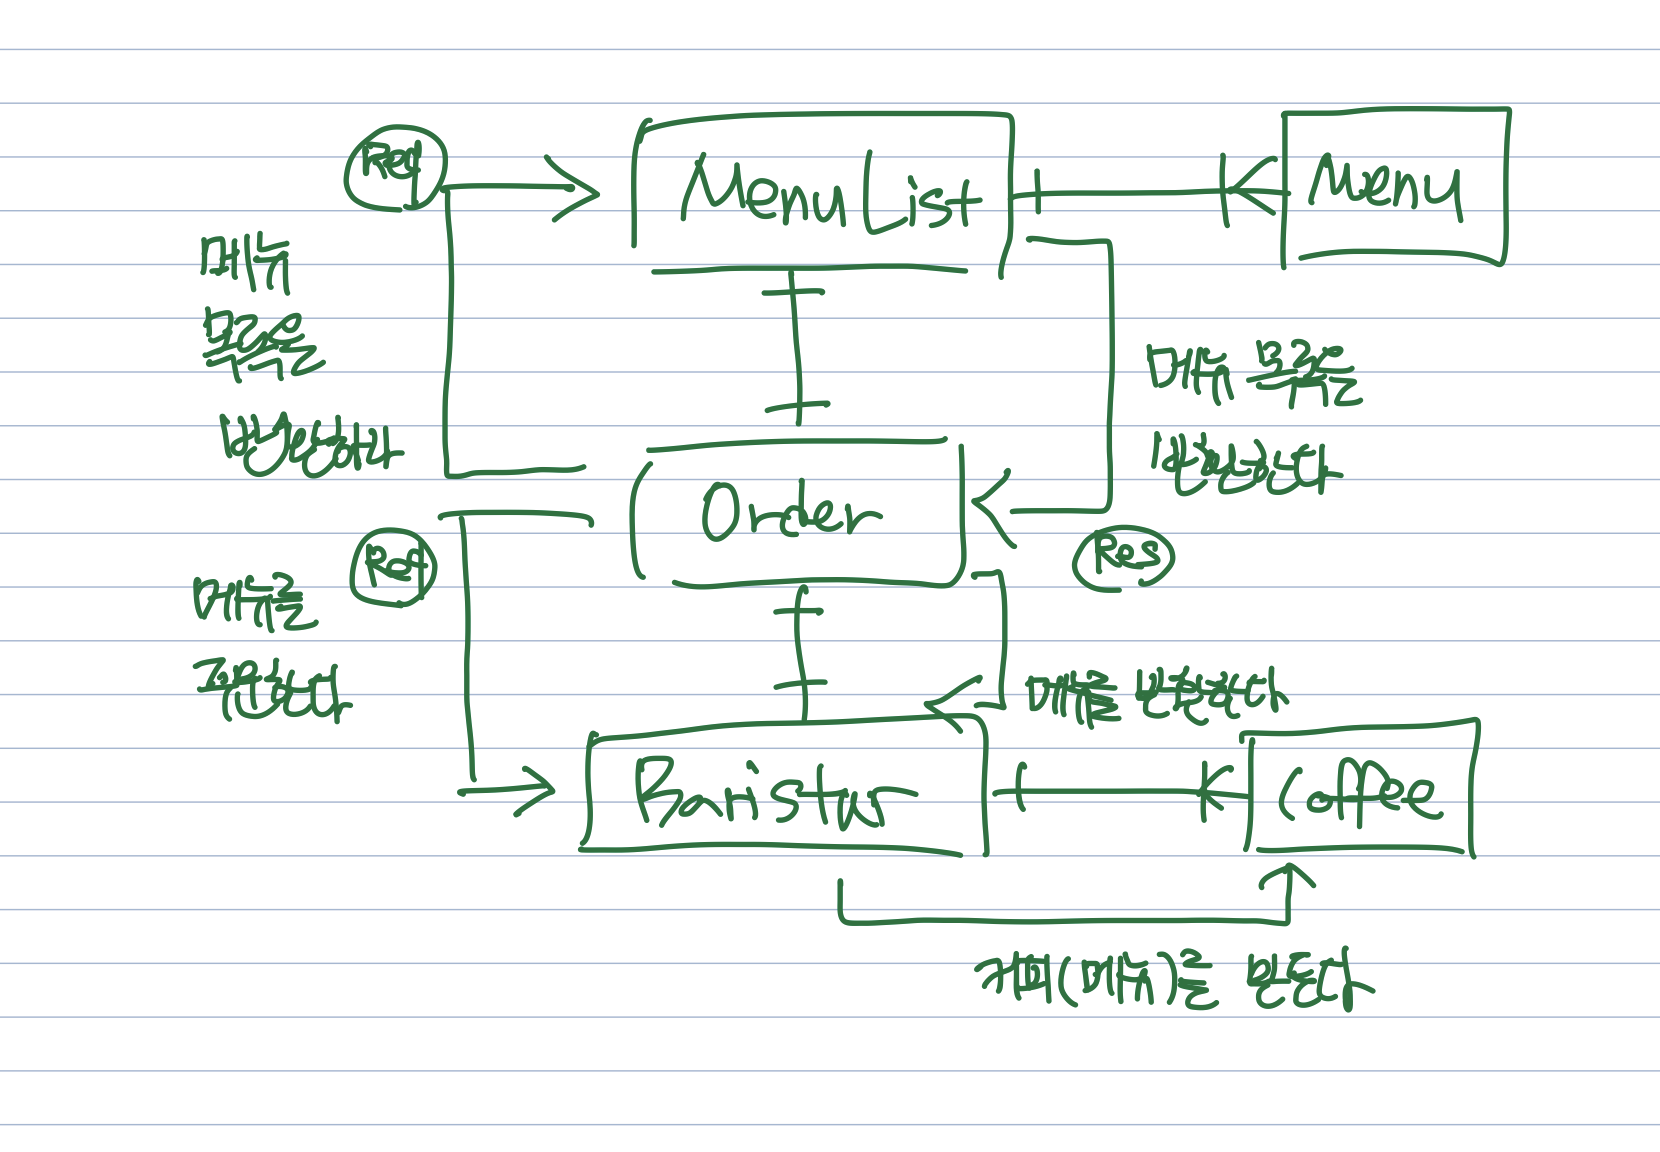 Req
MenuList
Menu
메뉴
목록을
메뉴 목록을
반환한다
Order
Req
Res
메뉴를
메뉴를 반환한다
Baristar
Coffee
커피(메뉴)를 만든다